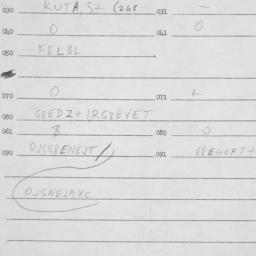 030 KUTA, S+ (268 031 —
040 0 041 0
050 FELBL
070 0 071
080 G8EDZ+1RG8EVET
081 082 0
090 OJSG8ENEJT 091 G8EHOFT+
OJSNEJAXC